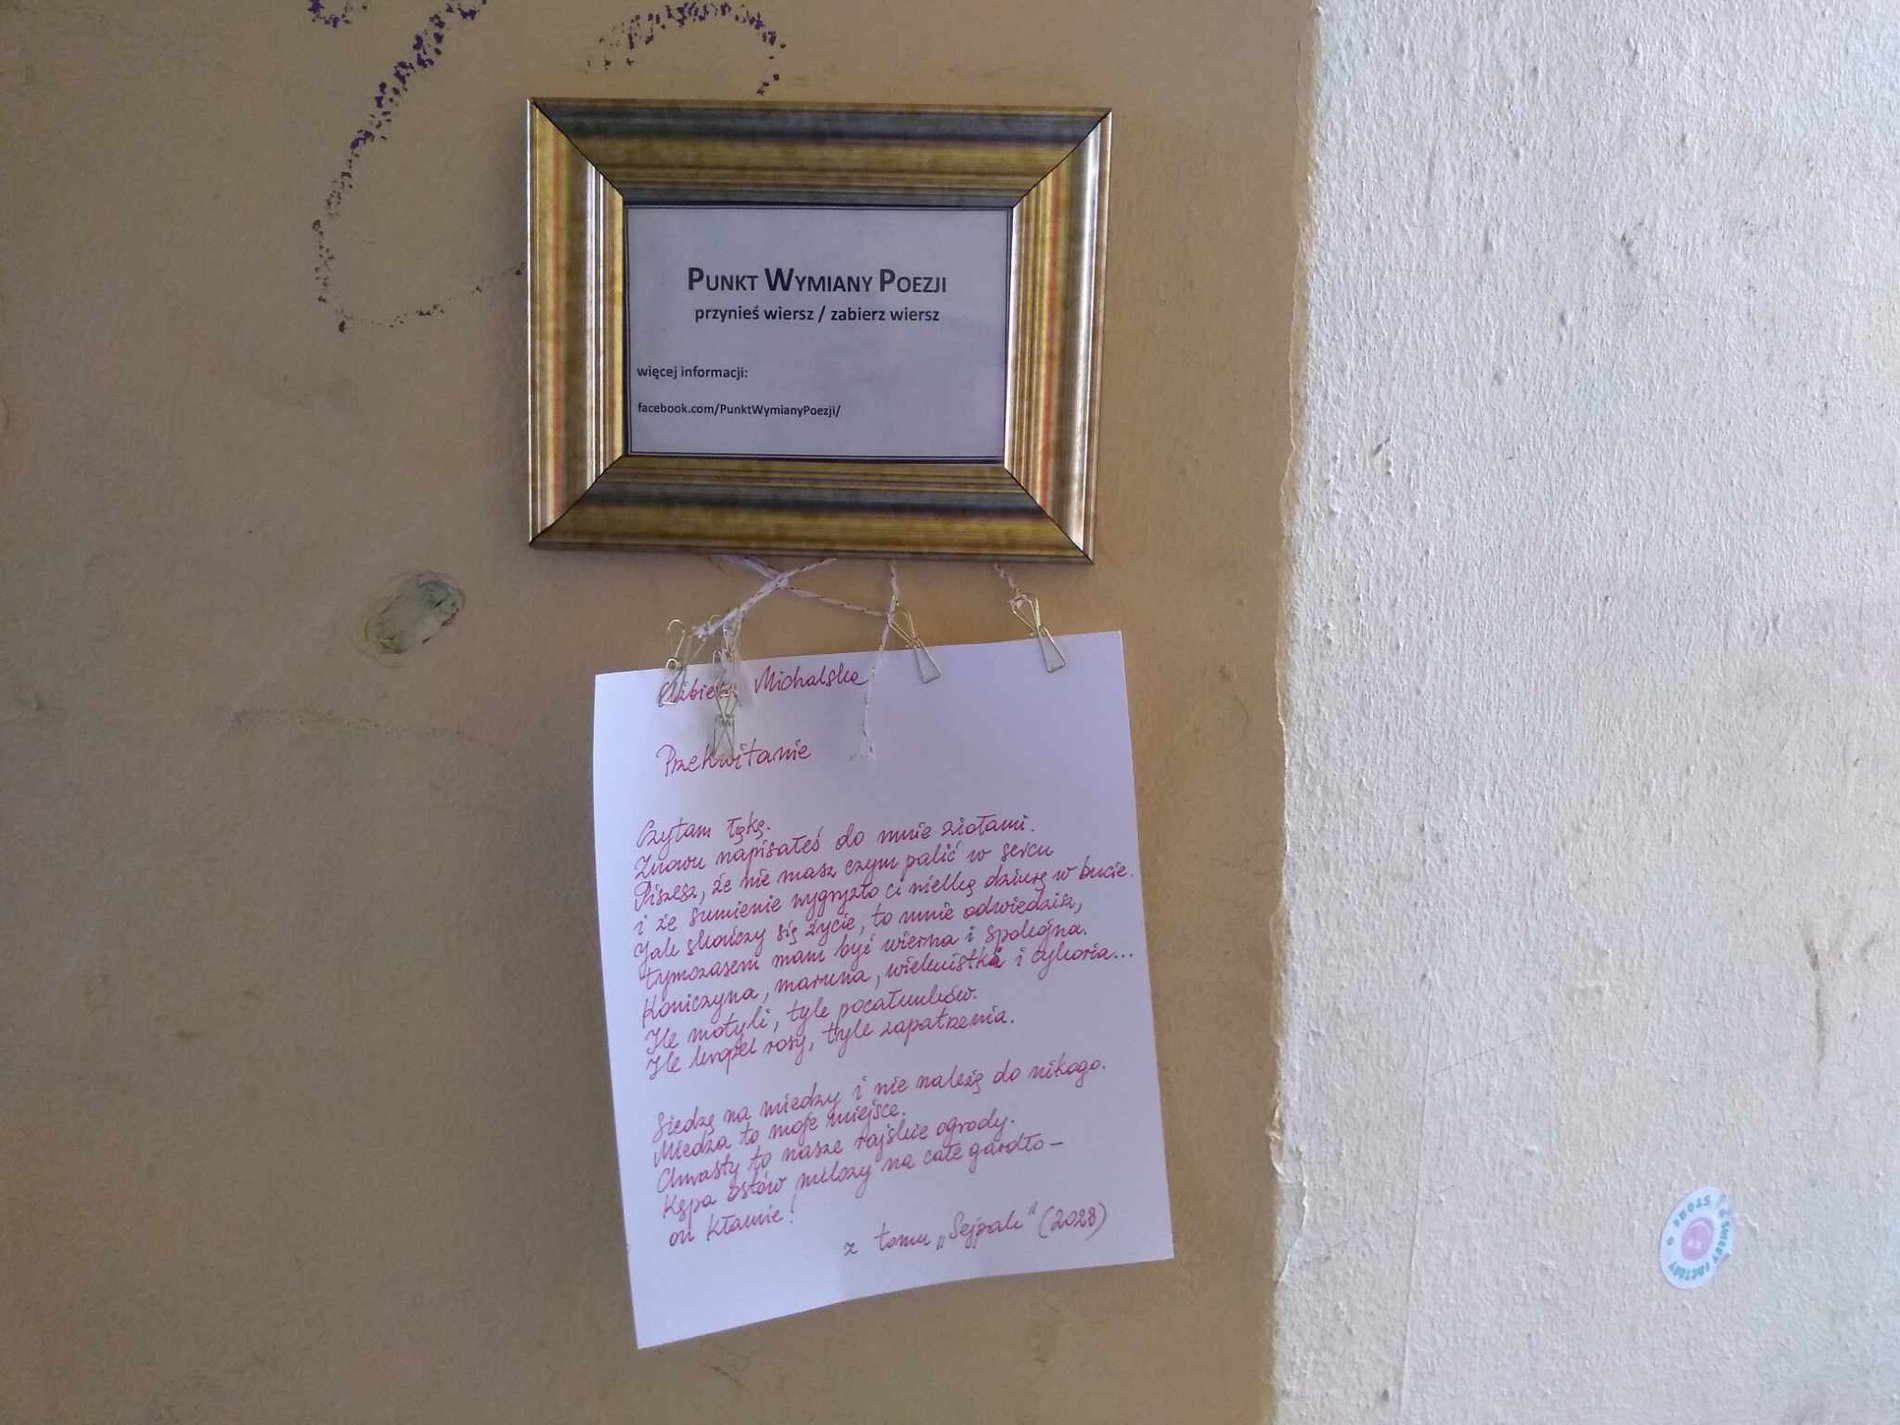 PUNKT WYMIANY POEZJI
przynieś wiersz / zabierz wiersz
więcej informacji:
facebook.com/PunktWymianyPoezji/
Michalska
Przekwitanie
Czytam łąkę.
Znowu napisałeś do mnie ziołami.
Piszesz, że nie masz czym palić w sercu
i że sumienie wygryzło ci wielką dziurę w bucie.
Jak skończy się życie, to mnie odwiedzisz,
tymczasem mam być wierna i spokojna.
Koniczyna, maruna, wielkuistka i cykoria...
Ile motyli, tyle pocałunków.
Ile kropel rosy, tyle zapatrzenia.
Siedzę na miedzy i nie należę do nikogo.
Miedza to moje miejsce.
Chwasty to nasze rajskie ogrody.
Kępa ostów milczy na całe gardło –
on kłamie!
z tomu „Sejpak" (2028)
FACTORY
STORE